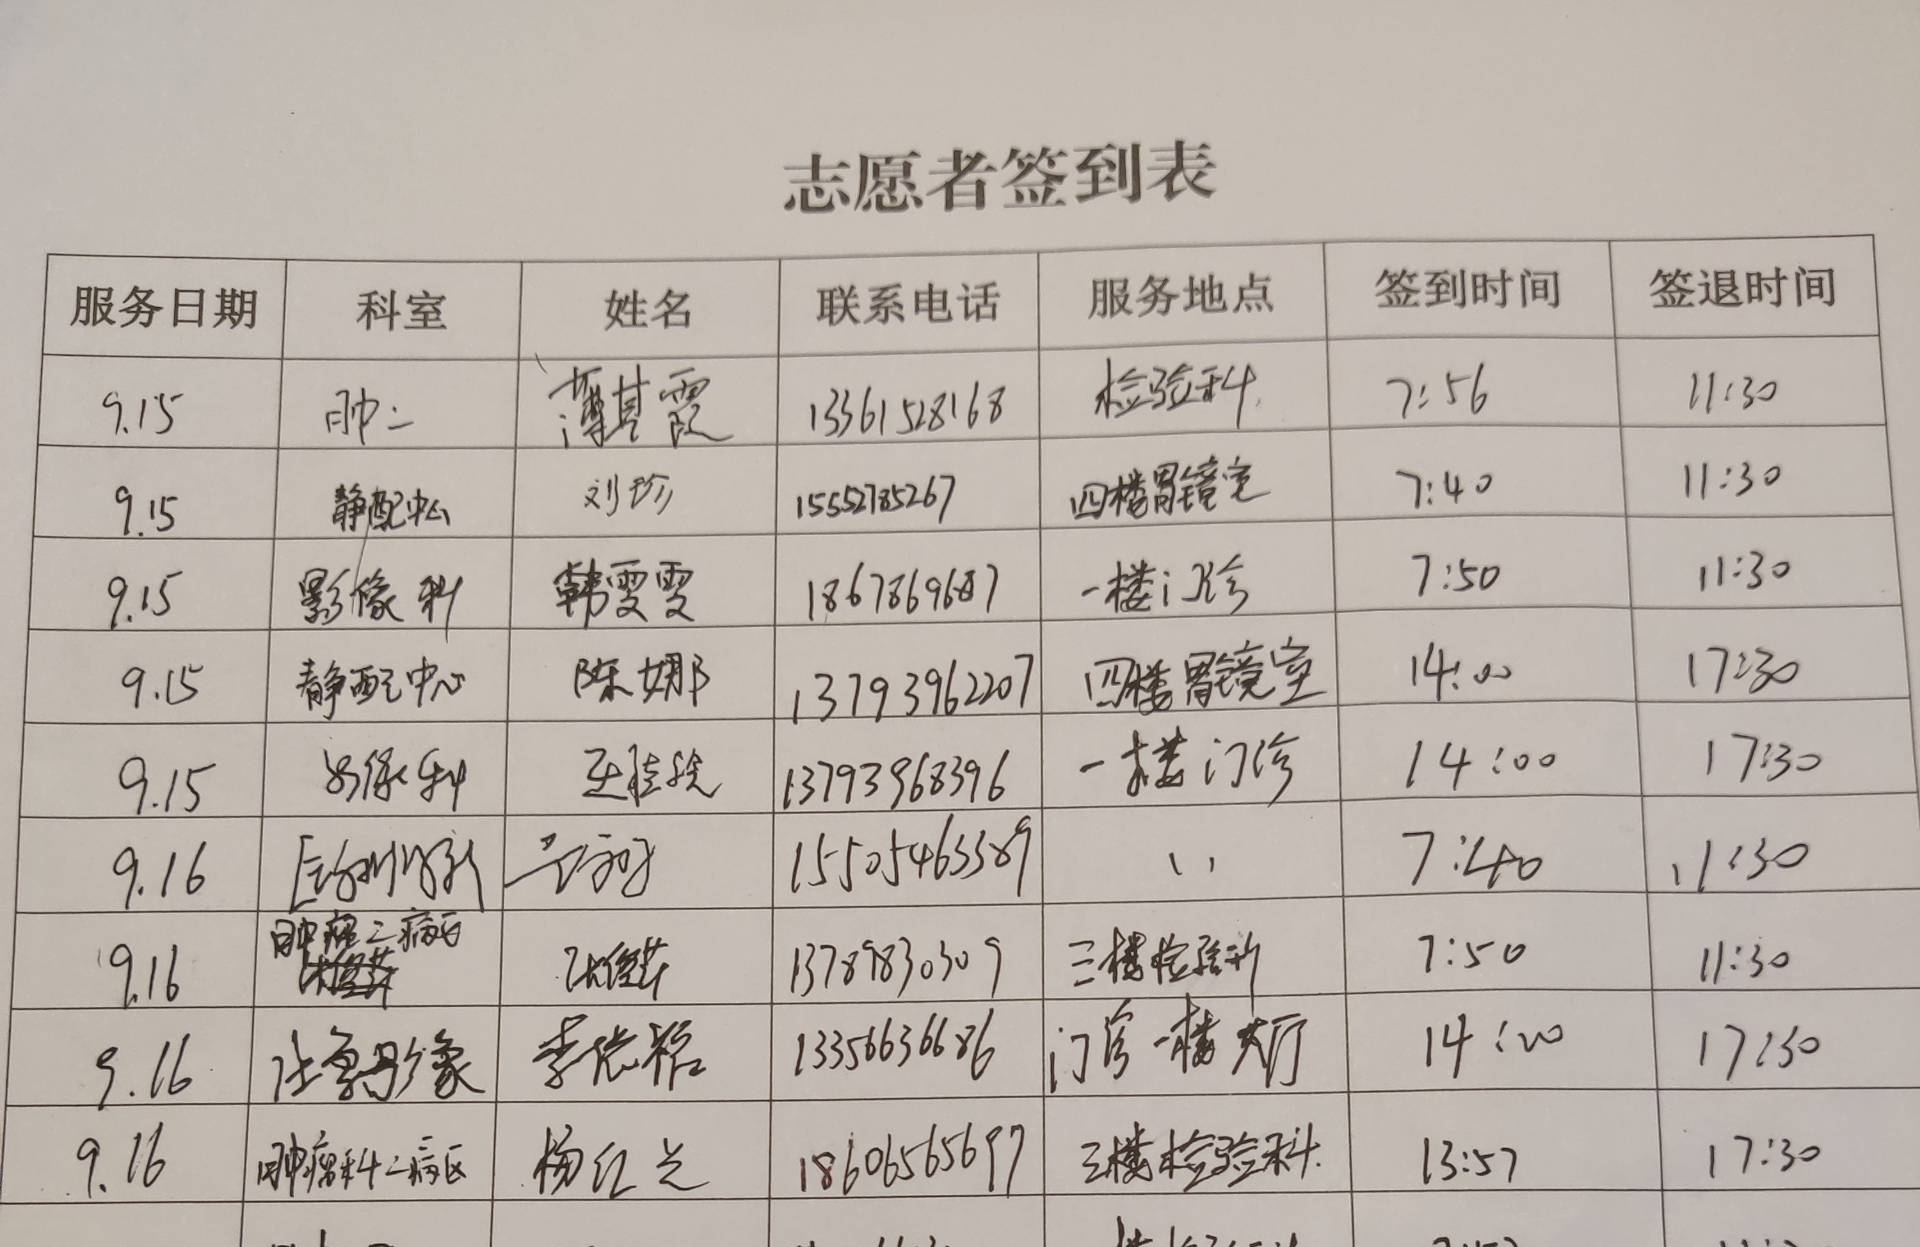 志愿者签到表
服务日期 科室 姓名 联系电话 服务地点 签到时间 签退时间
9.15 肿二 薄其霞 13361528168 检验科 7:56 11:30
9.15 静配中心 刘珍 15552785267 四楼胃镜室 7:40 11:30
9.15 影像科 韩雯雯 1867869687 一楼门诊 7:50 11:30
9.15 静配中心 陈娜 13793962207 四楼胃镜室 14:00 17:30
9.15 影像科 13793968396 一楼门诊 14:00 17:30
9.16 15505463389 、、 7:40 11:30
9.16 肿瘤二病区 张俊芹 13789830309 三楼检验科 7:50 11:30
9.16 影像 李 13356636686 门诊一楼大厅 14:00 17:30
9.16 肿瘤科二病区 杨红兰 18606565697 三楼检验科 13:57 17:30